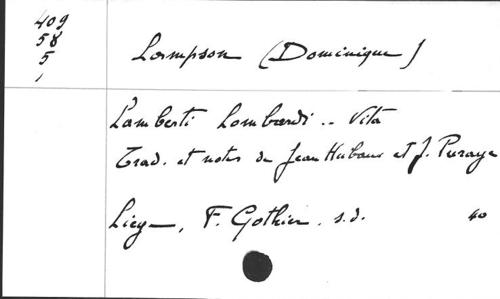 409
58
5
1
Lampson (Dominique)
Lamberti Lombardi .. Vita
Trad. et notes de Jean Hubaux et J. Puraye
Liège, F. Gothier. s.d. 40